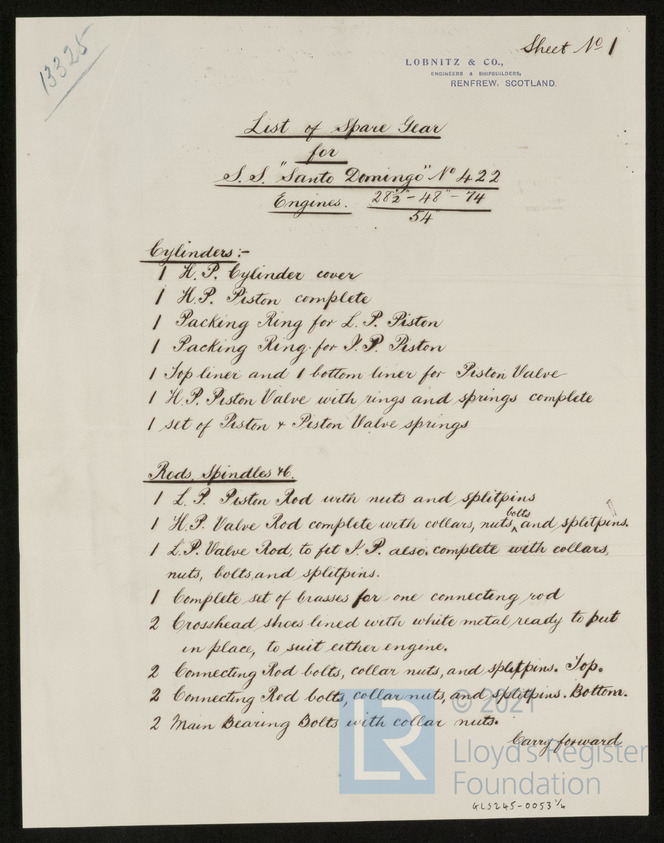 13325
Sheet No 1
LOBNITZ & CO.,
ENGINEERS & SHIPBUILDERS,
RENFREW, SCOTLAND.
List of Spare Gear
for
S.S. "Santo Domingo" No 422
Engines. 28½" - 48" - 74
54
Cylinders:-
1 H.P. Cylinder cover
1 H.P. Piston complete
1 Packing Ring for L.P. Piston
1 Packing Ring for I.P. Piston
1 Top liner and 1 bottom liner for Piston Valve
1 H.P. Piston Valve with rings and springs complete
1 set of Piston & Piston Valve springs
Rods, Spindles &c.
1 L.P. Piston Rod with nuts and splitpins
1 H.P. Valve Rod complete with collars, nuts, bolts and splitpins.
1 L.P. Valve Rod, to fit I.P. also, complete with collars,
nuts, bolts, and splitpins.
1 Complete set of brasses for one connecting rod
2 Crosshead shoes lined with white metal ready to put
in place, to suit either engine.
2 Connecting Rod bolts, collar nuts, and splitpins. Top.
2 Connecting Rod bolts, collar nuts, and splitpins. Bottom.
2 Main Bearing Bolts with collar nuts.
Carry forward
© 2021
LR
Lloyd's Register
Foundation
GLS245-0053 1/6